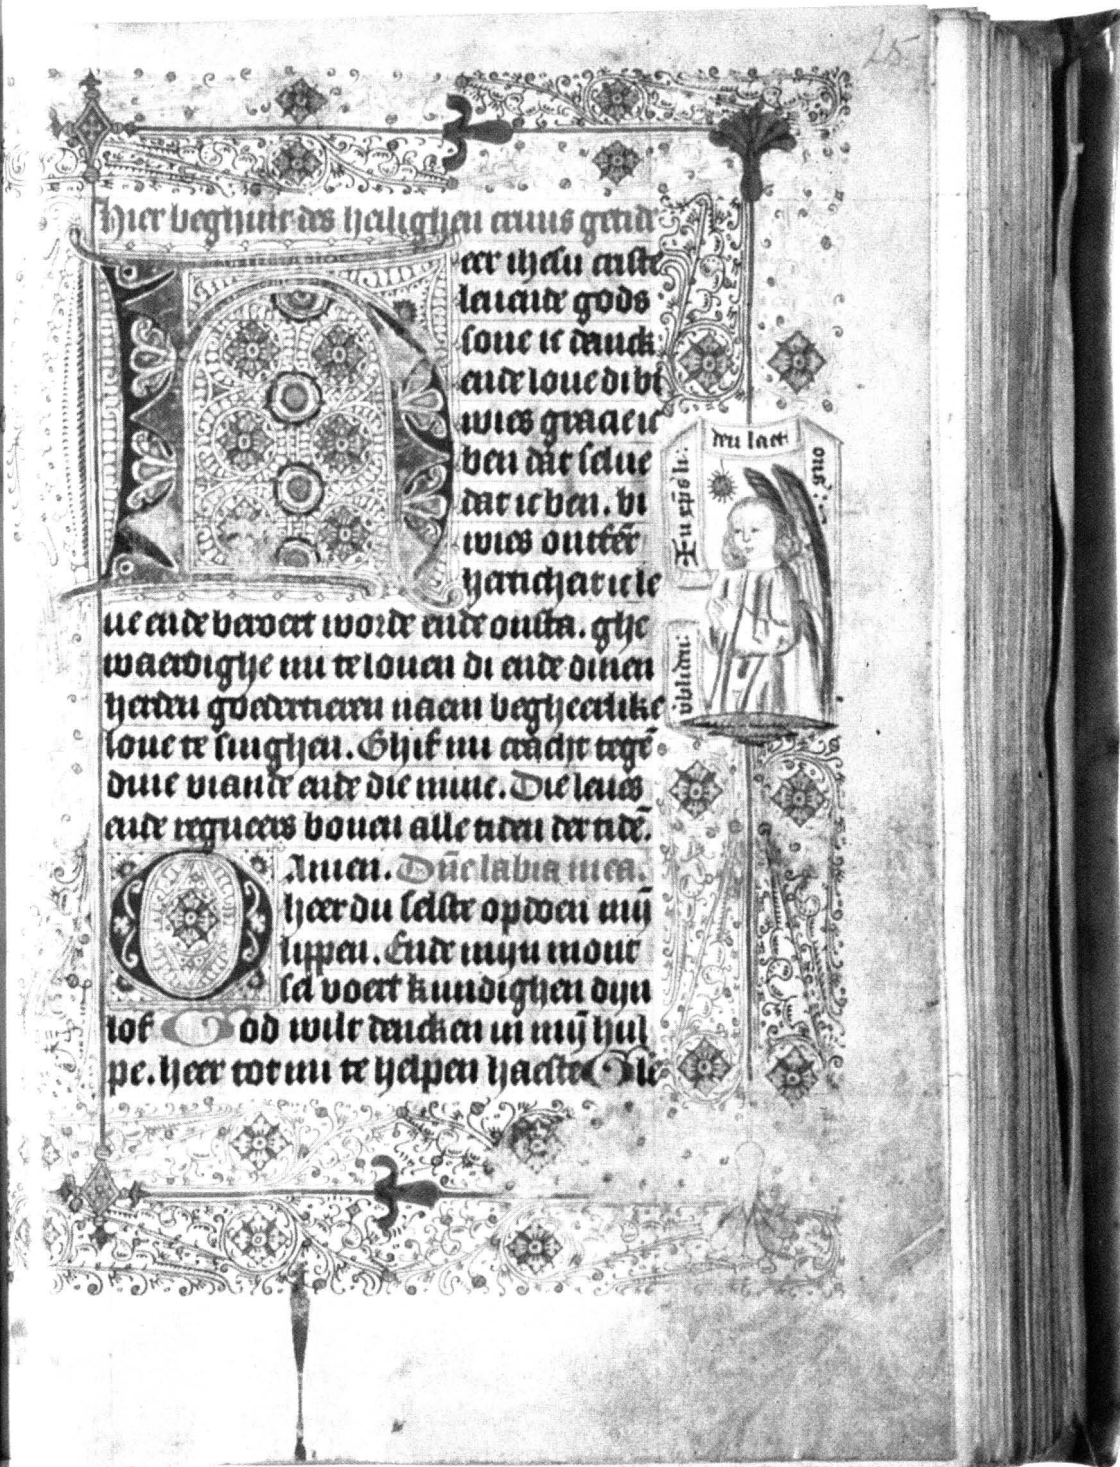 25.
Hier beghint des heilighen cruus getide
Heer ihesu criste
leuende gods
sone ic danck
ende loue di bi
wies gracie ic
ben dat selue
dat ic ben. bi
wies ontfer̄
herticheit ic le
ue ende beroert worde ende onsta. ghe
waerdighe mi te louen di ende dinen
herden goedertieren naem begheerlike
loue te singhen. Ghif mi cracht tegē
dine viande ende die mine. Die leues
ende regneers bouen alle tiden der tidē.
Amen. Dn̄e labia mea.
O heer du selste opdoen mȳ
lippen. Ende mijn mont
sel voert kundighen dijn
lof God wilt dencken in mȳ hul
pe. heer tot mi te helpen haeste Gle